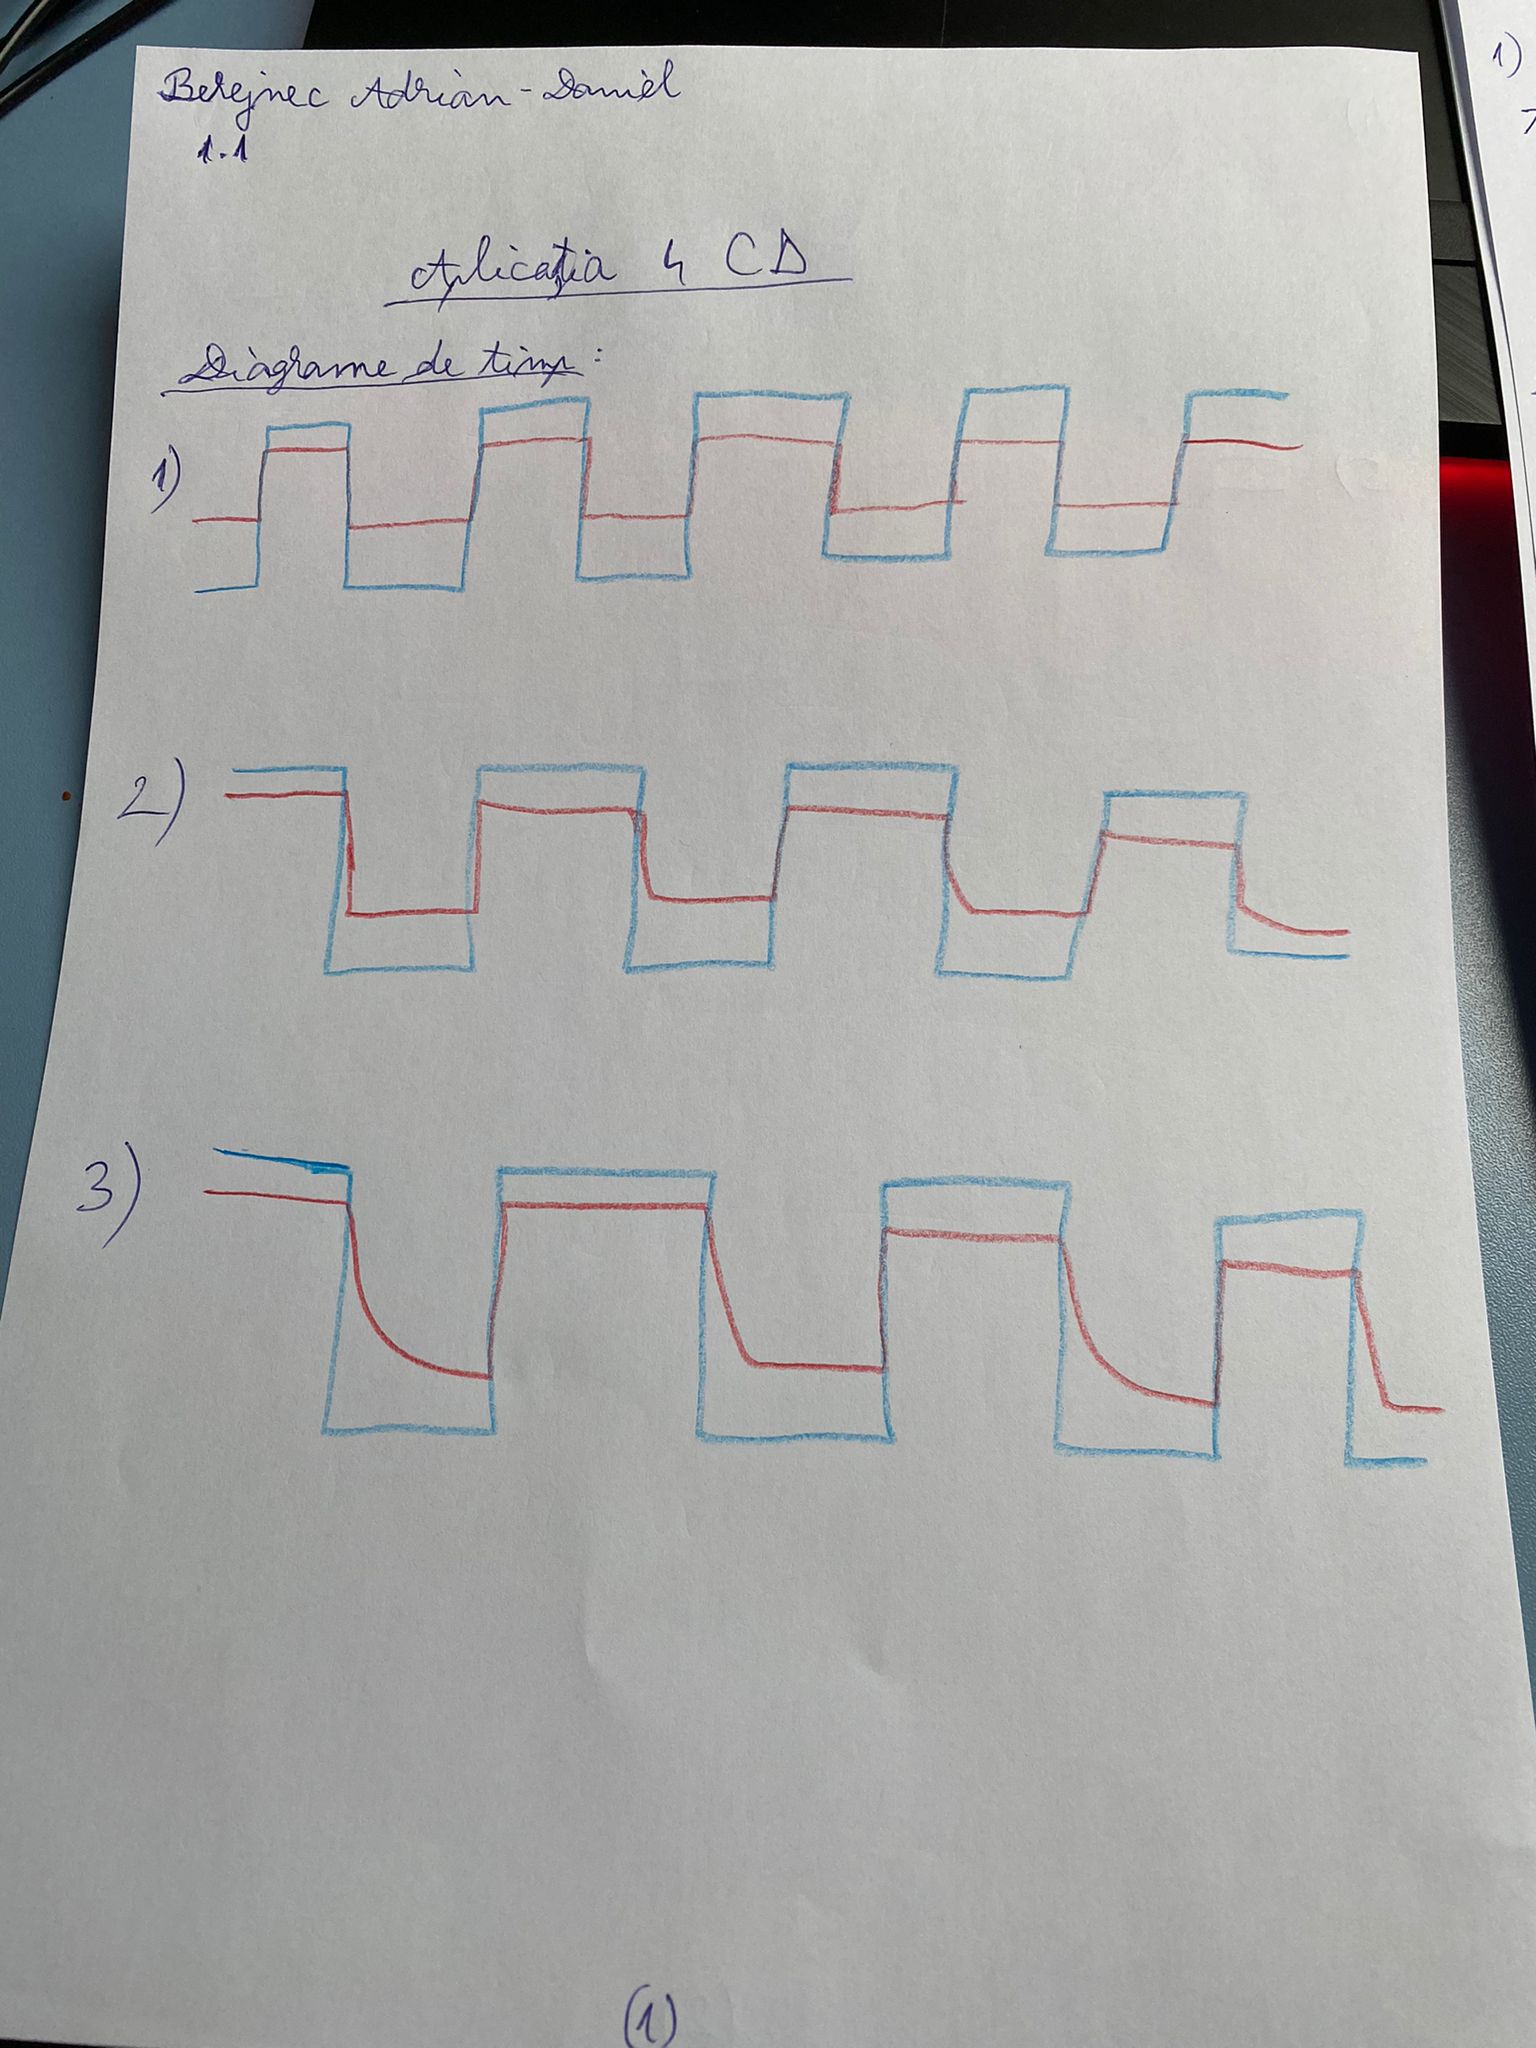 Berejnec Adrian-Daniel
1.1
Aplicația 4 CD
Diagrame de timp:
1)
2)
3)
(1)
1)
7